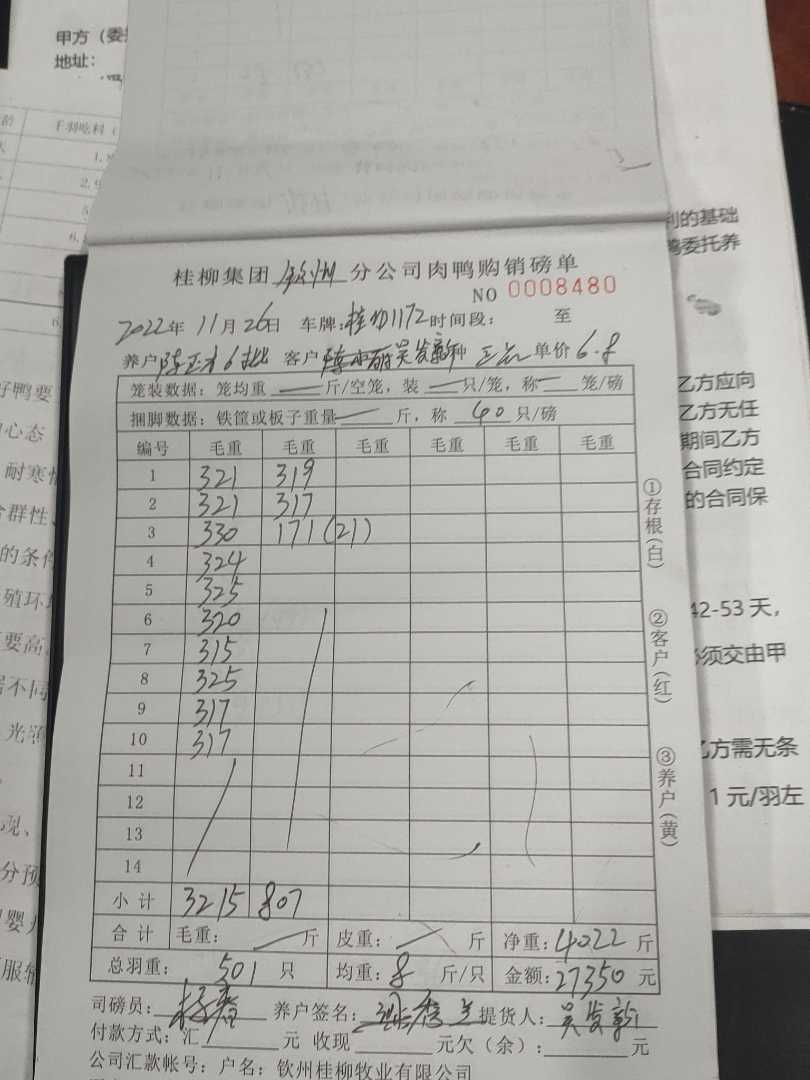 甲方（委
地址：
千羽吃料（
利的基础
鸭委托养
桂柳集团 钦州 分公司肉鸭购销磅单
NO 0008480
2022年 11月 26日 车牌: 1172 时间段: 至
养户 6批 客户 吴发新 种 单价 6.8
笼装数据: 笼均重 斤/空笼, 装 只/笼, 称 笼/磅
捆脚数据: 铁筐或板子重量 斤, 称 40 只/磅
编号 毛重 毛重 毛重 毛重 毛重 毛重
1 321 319
2 321 317
3 330 171(21)
4 324
5 325
6 320
7 315
8 325
9 317
10 317
11
12
13
14
小计 3215 807
合计 毛重: 斤 皮重: 斤 净重: 4022 斤
总羽重: 501 只 均重: 8 斤/只 金额: 27350 元
司磅员: 养户签名: 提货人: 吴发新
付款方式: 汇 元 收现 元欠(余): 元
公司汇款帐号: 户名: 钦州桂柳牧业有限公司
①存根(白)
②客户(红)
③养户(黄)
乙方应向
乙方无任
期间乙方
合同约定
的合同保
42-53 天，
必须交由甲
乙方需无条
1 元/羽左
好鸭要
心态
耐寒
合群性、
的条件
殖环
要高
不同
光
现、
分预
婴
服